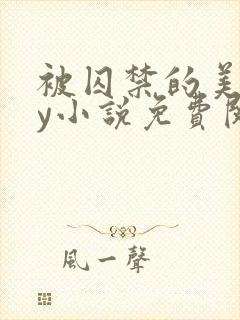 被囚禁的美
y小說免費閱
風一聲